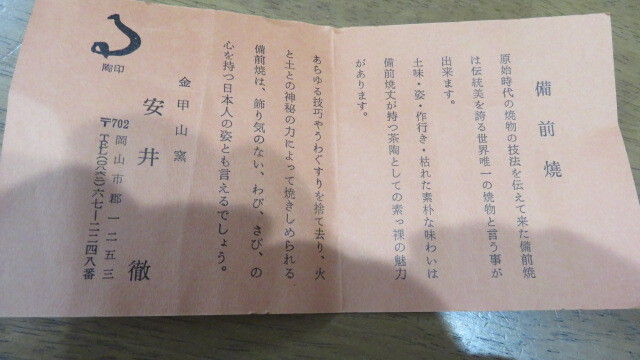 備前燒
原始時代の焼物の技法を伝えて来た備前焼
は伝統美を誇る世界唯一の焼物と言う事が
出来ます。
土味・姿・作行き・枯れた素朴な味わいは
備前焼丈が持つ茶陶としての素っ裸の魅力
があります。
あらゆる技巧やうわぐすりを捨て去り、火
と土との神秘の力によって焼きしめられる
備前焼は、飾り気のない、わび、さび、の
心を持つ日本人の姿とも言えるでしょう。
金甲山窯
安井 徹
〒702 岡山市郡一二五三
TEL(〇八六二)六七ー二二四八番
陶印